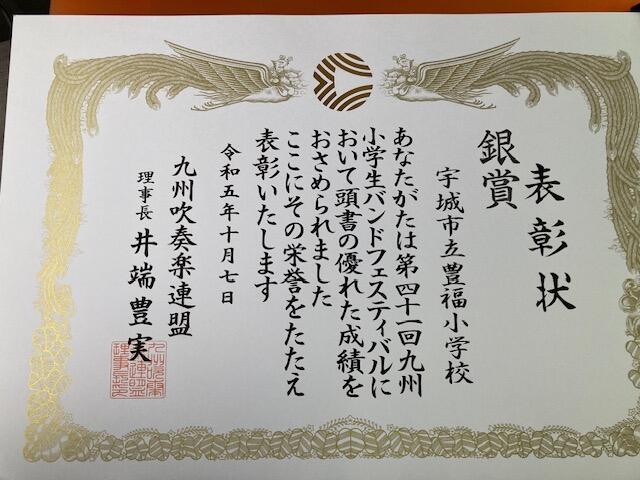 表彰状
銀賞
宇城市立豊福小学校
あなたがたは第四十一回九州
小学生バンドフェスティバルに
おいて頭書の優れた成績を
おさめられました
ここにその栄誉をたたえ
表彰いたします
令和五年十月七日
九州吹奏楽連盟
理事長 井端豊実